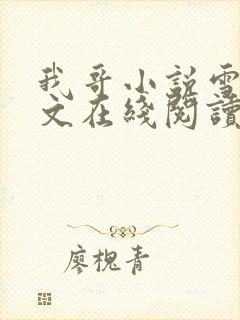 我哥小説雪
文在綫閲讀
廖槐青